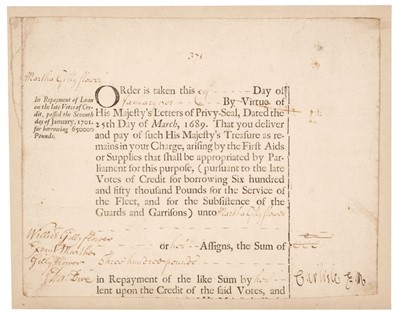 Martha Gillyflower
ORder is taken this Day of
By Virtue of
In Repayment of Loan
on the late Votes of Cre-
dit, passed the Seventh
day of January, 1701.
for borrowing 650000
Pounds.
His Majesty's Letters of Privy-Seal, Dated the
15th Day of March, 1689. That you deliver
and pay of such His Majesty's Treasure as re-
mains in your Charge, arising by the First Aids
or Supplies that shall be appropriated by Par-
liament for this purpose, (pursuant to the late
Votes of Credit for borrowing Six hundred
and fifty thousand Pounds for the Service of
the Fleet, and for the Subsistence of the
Guards and Garrisons) unto Martha Gillyflower
or her Assigns, the Sum of
Three hundred pounds
in Repayment of the like Sum by her
lent upon the Credit of the said Votes, and
Gillyflower
Martha
Gillyflower
Carlisle